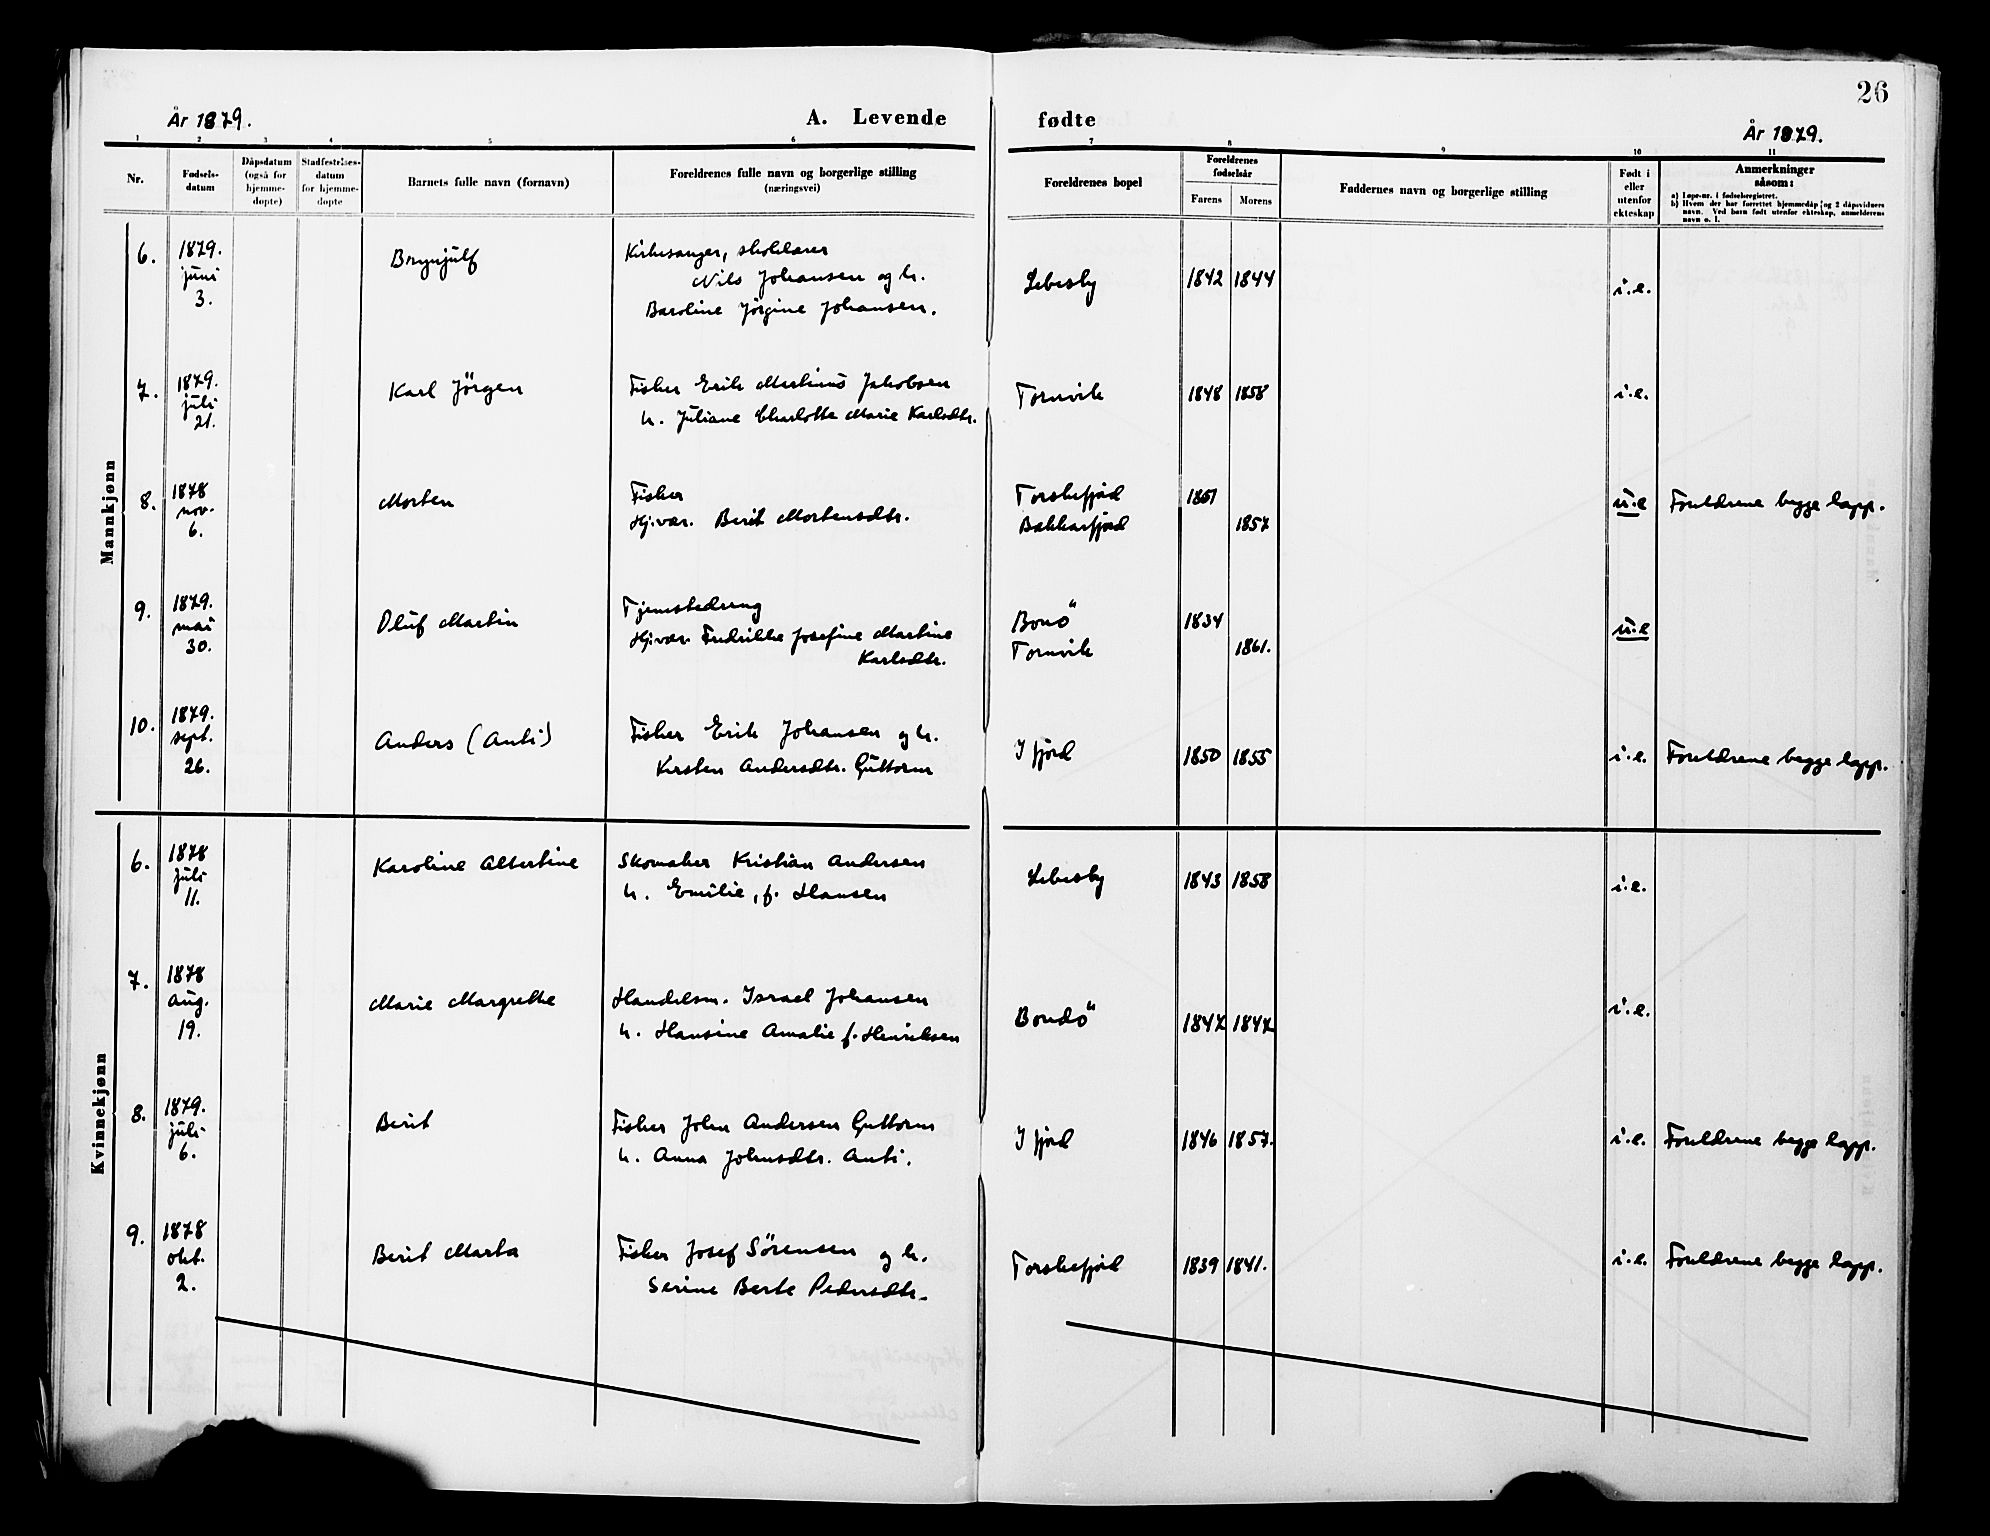 26
År 1879. A. Levende fødte År 1879.
1 2 3 4 5 6 7 8 9 10 11
Nr. Fødsels-datum Dåpsdatum (også for hjemme-døpte) Stadfestelses-datum for hjemme-døpte Barnets fulle navn (fornavn) Foreldrenes fulle navn og borgerlige stilling (næringsvei) Foreldrenes bopel Foreldrenes fødselsår Farens Morens Faddernes navn og borgerlige stilling Født i eller utenfor ekteskap Anmerkninger såsom:
a) Løpe-nr. i fødselsregistret.
b) Hvem der har forrettet hjemmedåp og 2 dåpsvidners navn. Ved barn født utenfor ekteskap, anmelderens navn o. l.
Mannkjønn
6. 1879. juni 3. Brynjulf Kirkesanger, skolelærer
Nils Johansen og h.
Baroline Jörgine Johansen. Lebesby 1842 1844 i.e.
7. 1879. juli 21. Karl Jörgen Fisker Erik Martinus Jakobsen
h. Juliane Charlotte Marie Karlsdtr. Tornvik 1848 1858 i.e.
8. 1878 nov. 6. Morten Fisker Torskefjord 1851 u.e Foreldrene begge lapp.
Hj.vær. Berit Mortensdtr. Bakkarfjord 1857
9. 1879. mai 30. Oluf Martin Tjenestedreng 1834 u.e
Hj.vær. Fredrikke Josefine Martine Tornvik 1861.
Karlsdtr.
10. 1879. sept. 26. Anders (Anti) Fisker Erik Johansen og h.
Kirsten Andersdtr. Guttorm Ifjord 1850 1855 i.e. Foreldrene begge lapp.
Kvinnekjønn
6. 1878 juli 11. Karoline Albertine Skomaker Kristian Andersen
h. Emilie, f. Hansen Lebesby 1843 1858 i.e.
7. 1878 aug. 19. Marie Margrethe Handelsm. Israel Johansen
h. Hansine Amalie f. Henriksen 1847 1847 i.e.
8. 1879. juli 6. Berit Fisker John Andersen Guttorm
h. Anna Johnsdtr. Anti. Ifjord 1846 1857. i.e. Foreldrene begge lapp.
9. 1878 okt. 2. Berit Marta Fisker Josef Sörensen og h.
Serine Berte Pedersdtr. Torskefjord 1839 1841. i.e. Foreldrene begge lapp.